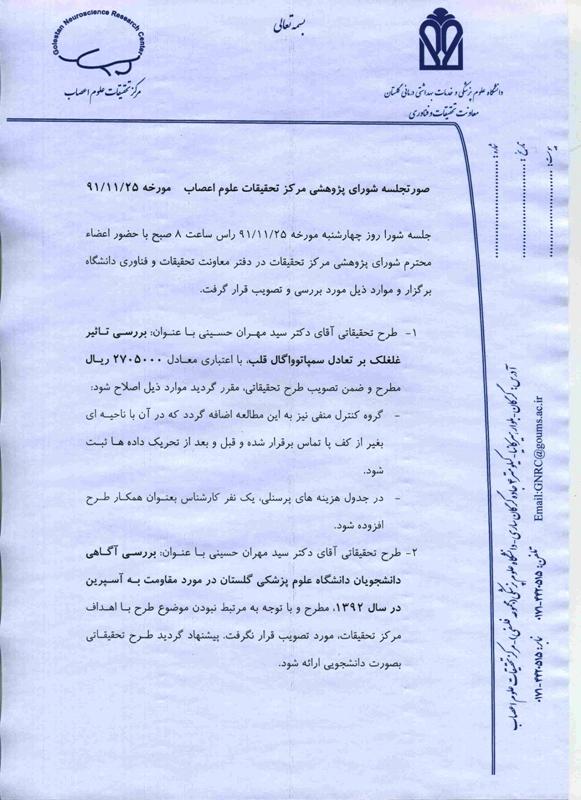 بسمه تعالی
Golestan Neuroscience Research Center
مرکز تحقیقات علوم اعصاب
دانشگاه علوم پزشکی و خدمات بهداشتی درمانی گلستان
معاونت تحقیقات و فناوری
شماره:
تاریخ:
پیوست:
صورتجلسه شورای پژوهشی مرکز تحقیقات علوم اعصاب مورخه ۹۱/۱۱/۲۵
جلسه شورا روز چهارشنبه مورخه ۹۱/۱۱/۲۵ راس ساعت ۸ صبح با حضور اعضاء
محترم شورای پژوهشی مرکز تحقیقات در دفتر معاونت تحقیقات و فناوری دانشگاه
برگزار و موارد ذیل مورد بررسی و تصویب قرار گرفت.
۱- طرح تحقیقاتی آقای دکتر سید مهران حسینی با عنوان: بررسی تاثیر
غلغلک بر تعادل سمپاتوواگال قلب، با اعتباری معادل ۲۷۰۵۰۰۰ ریال
مطرح و ضمن تصویب طرح تحقیقاتی، مقرر گردید موارد ذیل اصلاح شود:
- گروه کنترل منفی نیز به این مطالعه اضافه گردد که در آن با ناحیه ای
بغیر از کف پا تماس برقرار شده و قبل و بعد از تحریک داده ها ثبت
شود.
- در جدول هزینه های پرسنلی، یک نفر کارشناس بعنوان همکار طرح
افزوده شود.
۲- طرح تحقیقاتی آقای دکتر سید مهران حسینی با عنوان: بررسی آگاهی
دانشجویان دانشگاه علوم پزشکی گلستان در مورد مقاومت به آسپرین
در سال ۱۳۹۲، مطرح و با توجه به مرتبط نبودن موضوع طرح با اهداف
مرکز تحقیقات، مورد تصویب قرار نگرفت. پیشنهاد گردید طرح تحقیقاتی
بصورت دانشجویی ارائه شود.
آدرس: گرگان- جاده گرگان ساری- دانشگاه علوم پزشکی- مرکز تحقیقات علوم اعصاب
تلفن: ۰۱۷۱-۴۴۲۰۵۱۵ نمابر: ۰۱۷۱-۴۴۲۰۵۱۵
Email:GNRC@goums.ac.ir